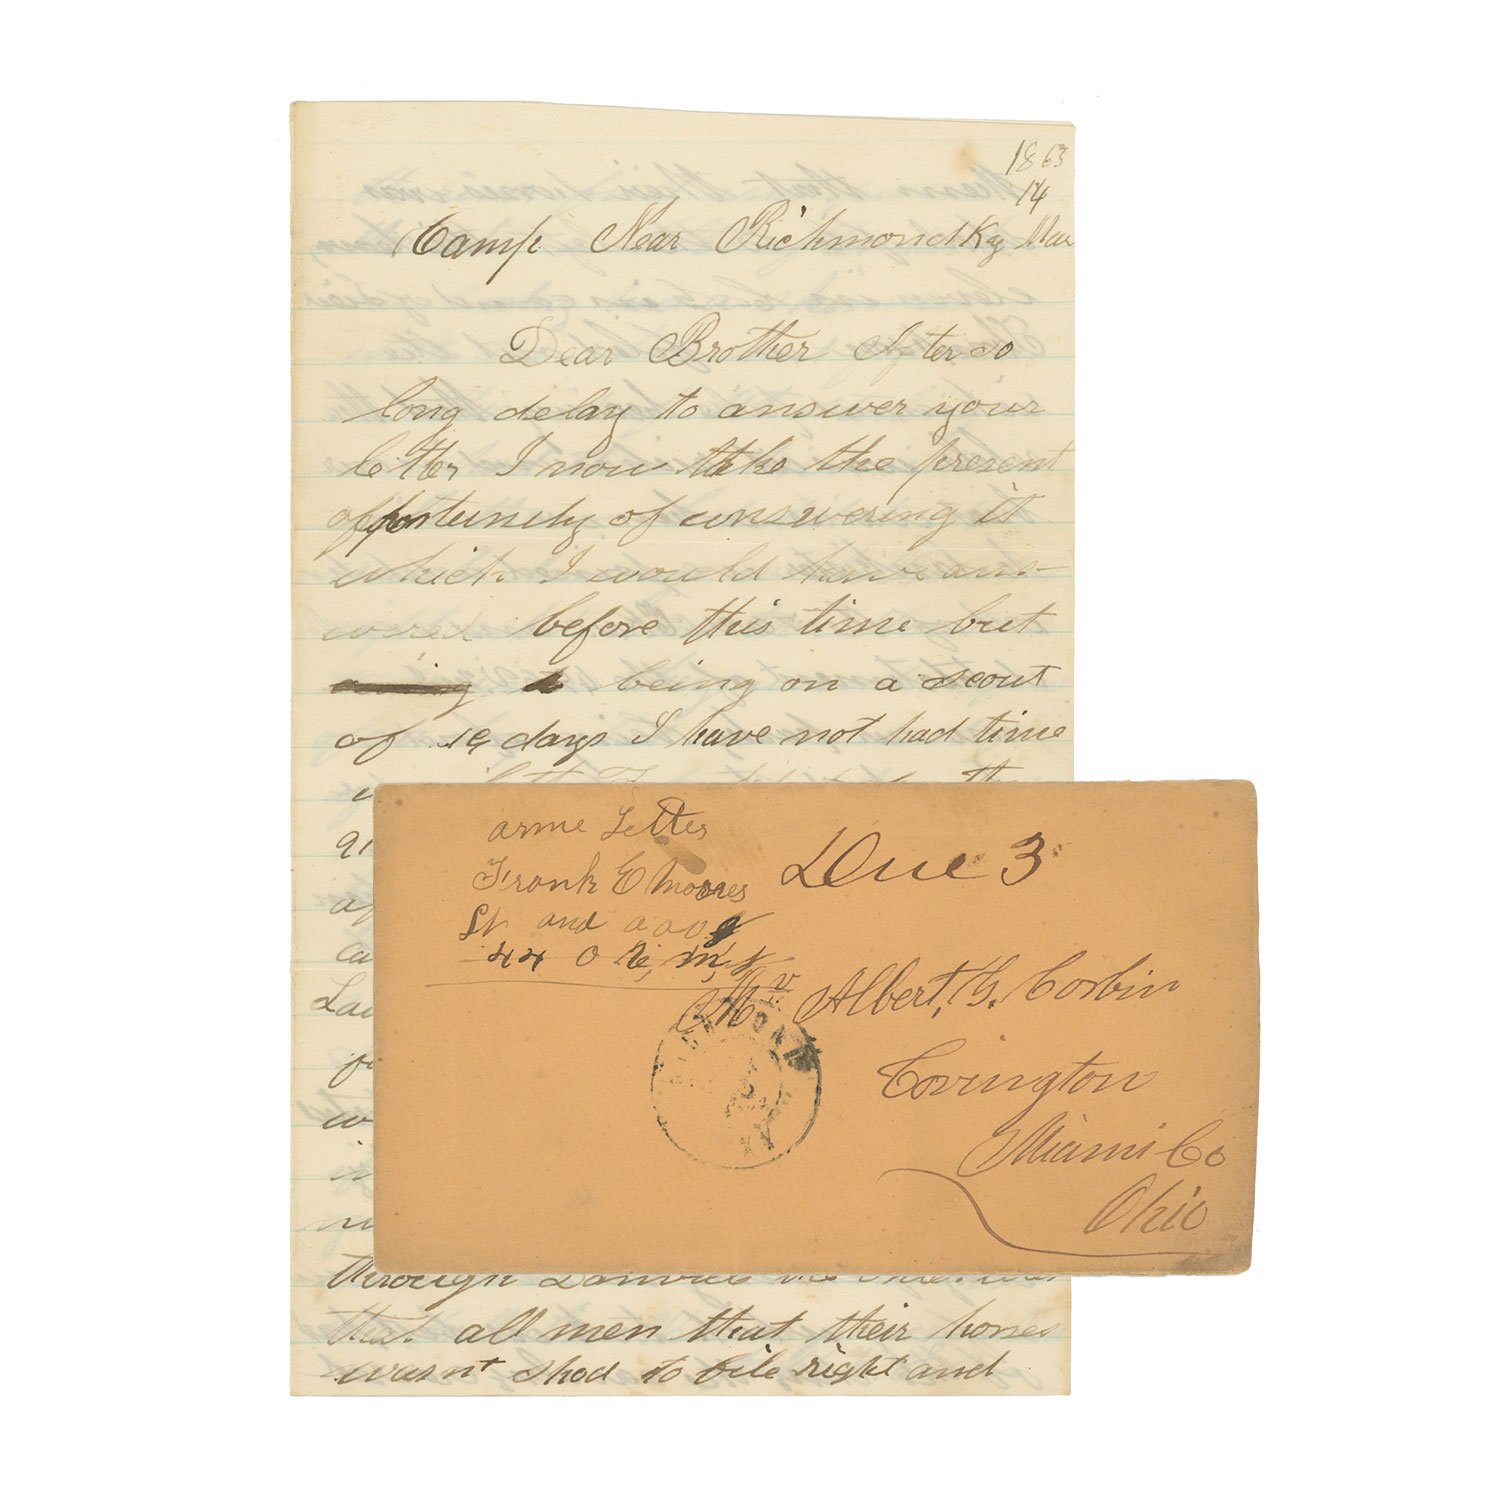 1863
14
Camp Near Richmond Ky Mar
Dear Brother After so
long delay to answer your
letter I now take the present
opportunity of answering it
which I would have ans-
wered before this time but
being on a scout
of days I have not had time
through the
that all men that their horses
warnt shod to file right and
arme Letter
Frank E Moores
Lt and
44 O
Due 3
Mr Albert, G. Corbin
Covington
Miami Co
Ohio
KY